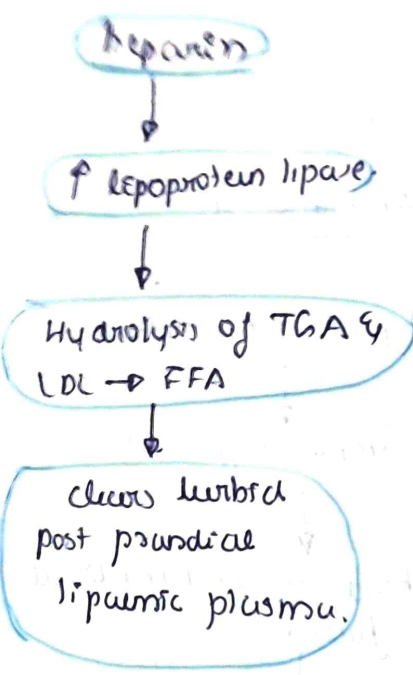 Heparin
↑ lepoprotein lipase
Hydrolysis of TGA &
LDL → FFA
clears turbid
post prandial
lipaemic plasma.